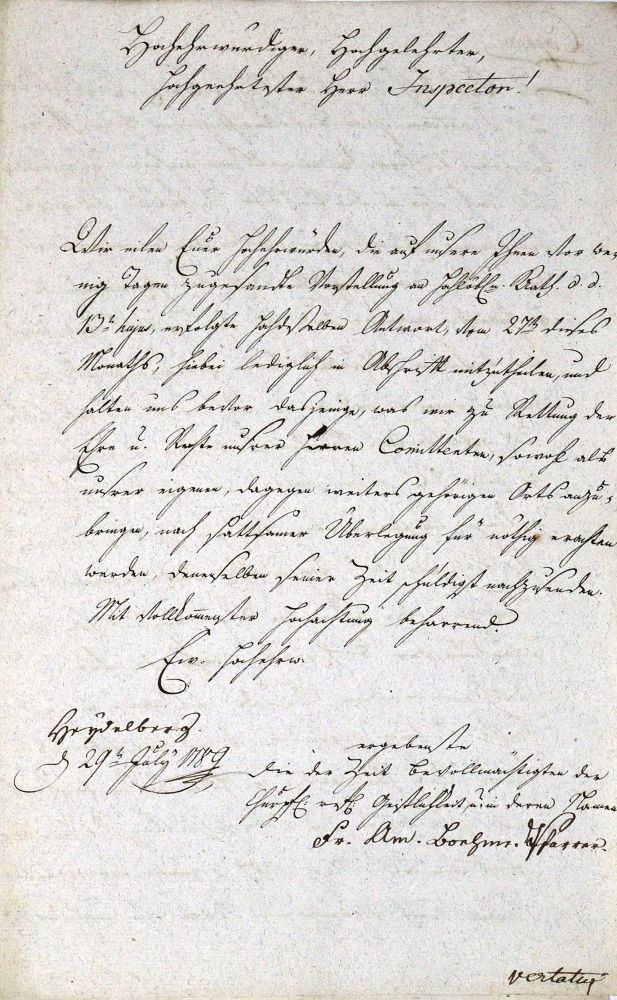 Hochehrwürdiger, Hochgelehrter,
Hochgeehrtester Herr Inspector!
Wir eilen Euer Hochehrwürden, die auf unsere Ihnen vor we-
nig Tagen zugesandte Vorstellung an Hochlöbl. Rath d. d.
13ten hujus, erfolgte Hochdesselben Antwort, vom 27ten dieses
Monaths, hiebei lediglich in Abschrift mitzutheilen, und
halten uns bevor dasjenige, was wir zu Rettung der
Ehre u. Rechte unsrer Herren Comittenten, sowol als
unsrer eigenen, dagegen weiters gehörigen Orts anzu-
bringen, nach sattsamer Überlegung für nöthig erachten
werden, denenselben seiner Zeit schuldigst nachzusenden.
Mit vollkommenster Hochachtung beharrend.
Ew. Hochehrw.
Heydelberg.
d 29ten July 1789
ergebenste
Die der Zeit bevollmächtigten der
Churpf. ref. Geistlichkeit, u. in deren Namen
Fr. Am. Boehme. Pfarrer.
vertatur